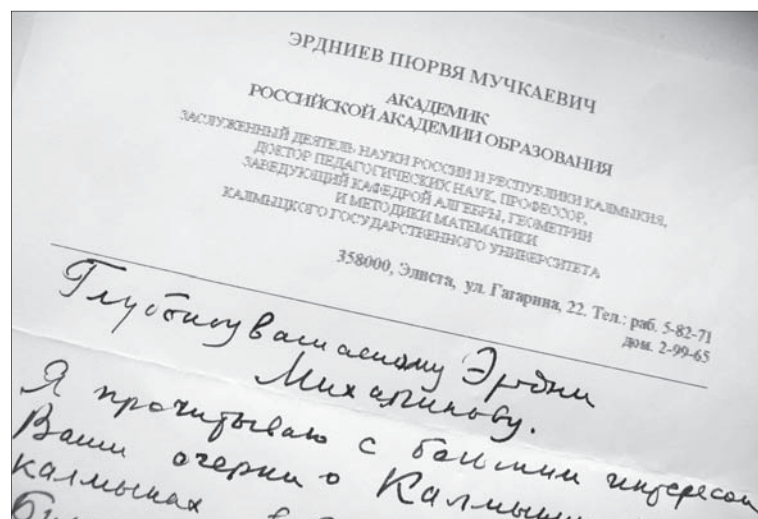 ЭРДНИЕВ ПЮРВЯ МУЧКАЕВИЧ
АКАДЕМИК
РОССИЙСКОЙ АКАДЕМИИ ОБРАЗОВАНИЯ
ЗАСЛУЖЕННЫЙ ДЕЯТЕЛЬ НАУКИ РОССИИ И РЕСПУБЛИКИ КАЛМЫКИЯ,
ДОКТОР ПЕДАГОГИЧЕСКИХ НАУК, ПРОФЕССОР,
ЗАВЕДУЮЩИЙ КАФЕДРОЙ АЛГЕБРЫ, ГЕОМЕТРИИ
И МЕТОДИКИ МАТЕМАТИКИ
КАЛМЫЦКОГО ГОСУДАРСТВЕННОГО УНИВЕРСИТЕТА
358000, Элиста, ул. Гагарина, 22. Тел.: раб. 5-82-71
дом. 2-99-65
Глубокоуважаемому Эрдни
Михалинову.
Я прочитываю с большим интересом
Ваши очерки о
калмыках в